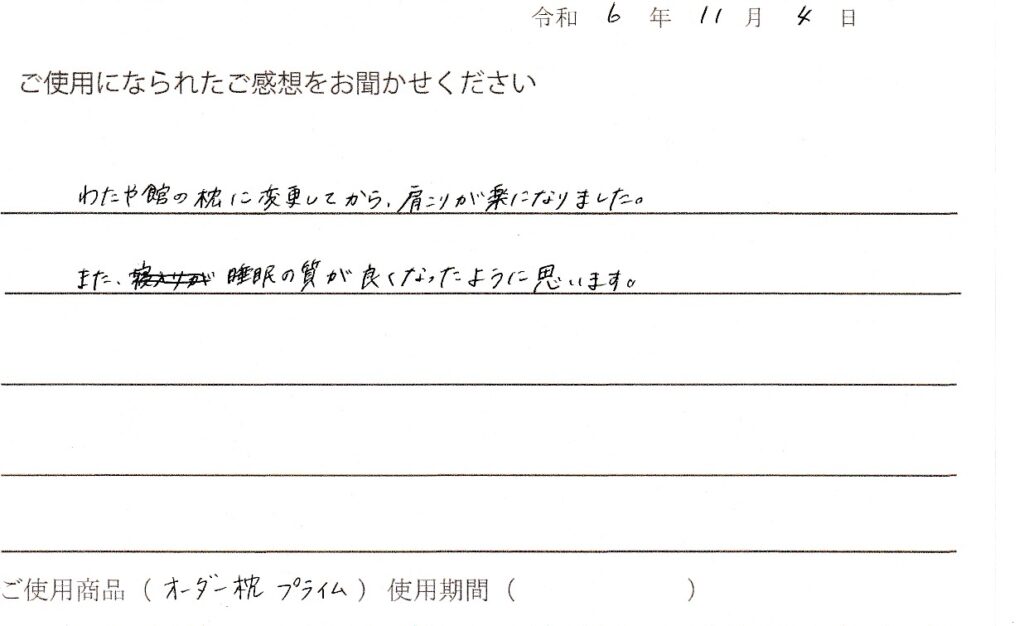 令和 6 年 11 月 4 日
ご使用になられたご感想をお聞かせください
わたや館の枕に変更してから、肩こりが楽になりました。
また、睡眠の質が良くなったように思います。
ご使用商品（オーダー枕 プライム）使用期間（　　　　　）